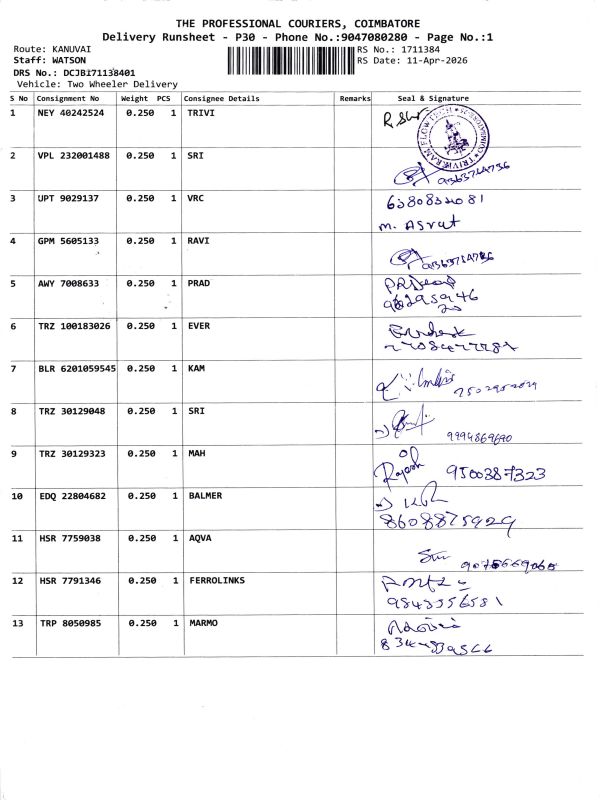 THE PROFESSIONAL COURIERS, COIMBATORE
Delivery Runsheet - P30 - Phone No.:9047080280 - Page No.:1
Route: KANUVAI RS No.: 1711384
Staff: WATSON RS Date: 11-Apr-2026
DRS No.: DCJBI71138401
Vehicle: Two Wheeler Delivery
S No Consignment No Weight PCS Consignee Details Remarks Seal & Signature
1 NEY 40242524 0.250 1 TRIVI
2 VPL 232001488 0.250 1 SRI
3 UPT 9029137 0.250 1 VRC
M. Asrat
4 GPM 5605133 0.250 1 RAVI
5 AWY 7008633 0.250 1 PRAD
6 TRZ 100183026 0.250 1 EVER
7 BLR 6201059545 0.250 1 KAM
8 TRZ 30129048 0.250 1 SRI
9994869690
9 TRZ 30129323 0.250 1 MAH
Rajesh 9500387323
10 EDQ 22804682 0.250 1 BALMER
8608875929
11 HSR 7759038 0.250 1 AQVA
12 HSR 7791346 0.250 1 FERROLINKS
9843356581
13 TRP 8050985 0.250 1 MARMO